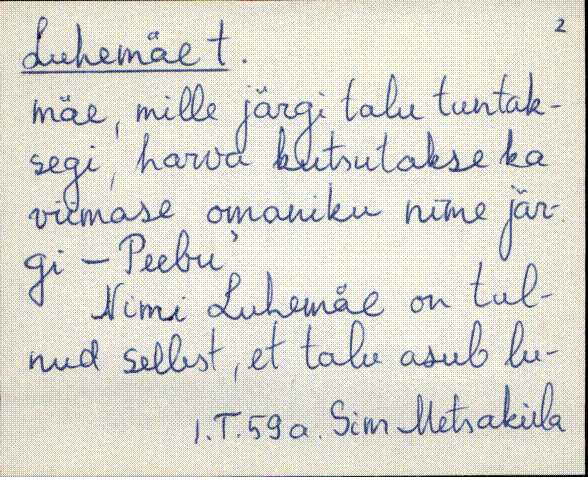 2
Luhemäe t.
mäe, mille järgi talu tuntak-
segi, harva kutsutakse ka
viimase omaniku nime jär-
gi – Peebu'
Nimi Luhemäe on tul-
nud sellest, et talu asub lu-
1.T.59a. Sim Metsaküla